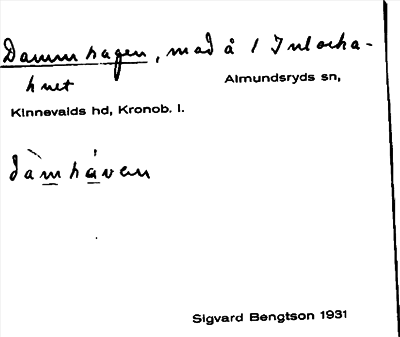 Dammhagen, mad å / Inlocka-
hult
Almundsryds sn,
Kinnevalds hd, Kronob. l.
dàmhávan
Sigvard Bengtson 1931